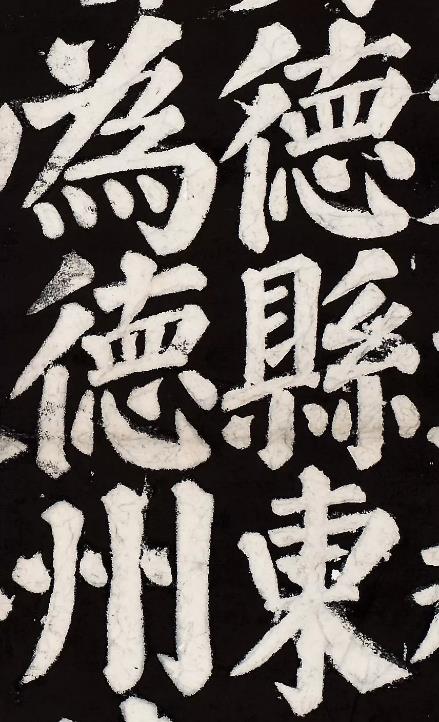 德縣東
為德州